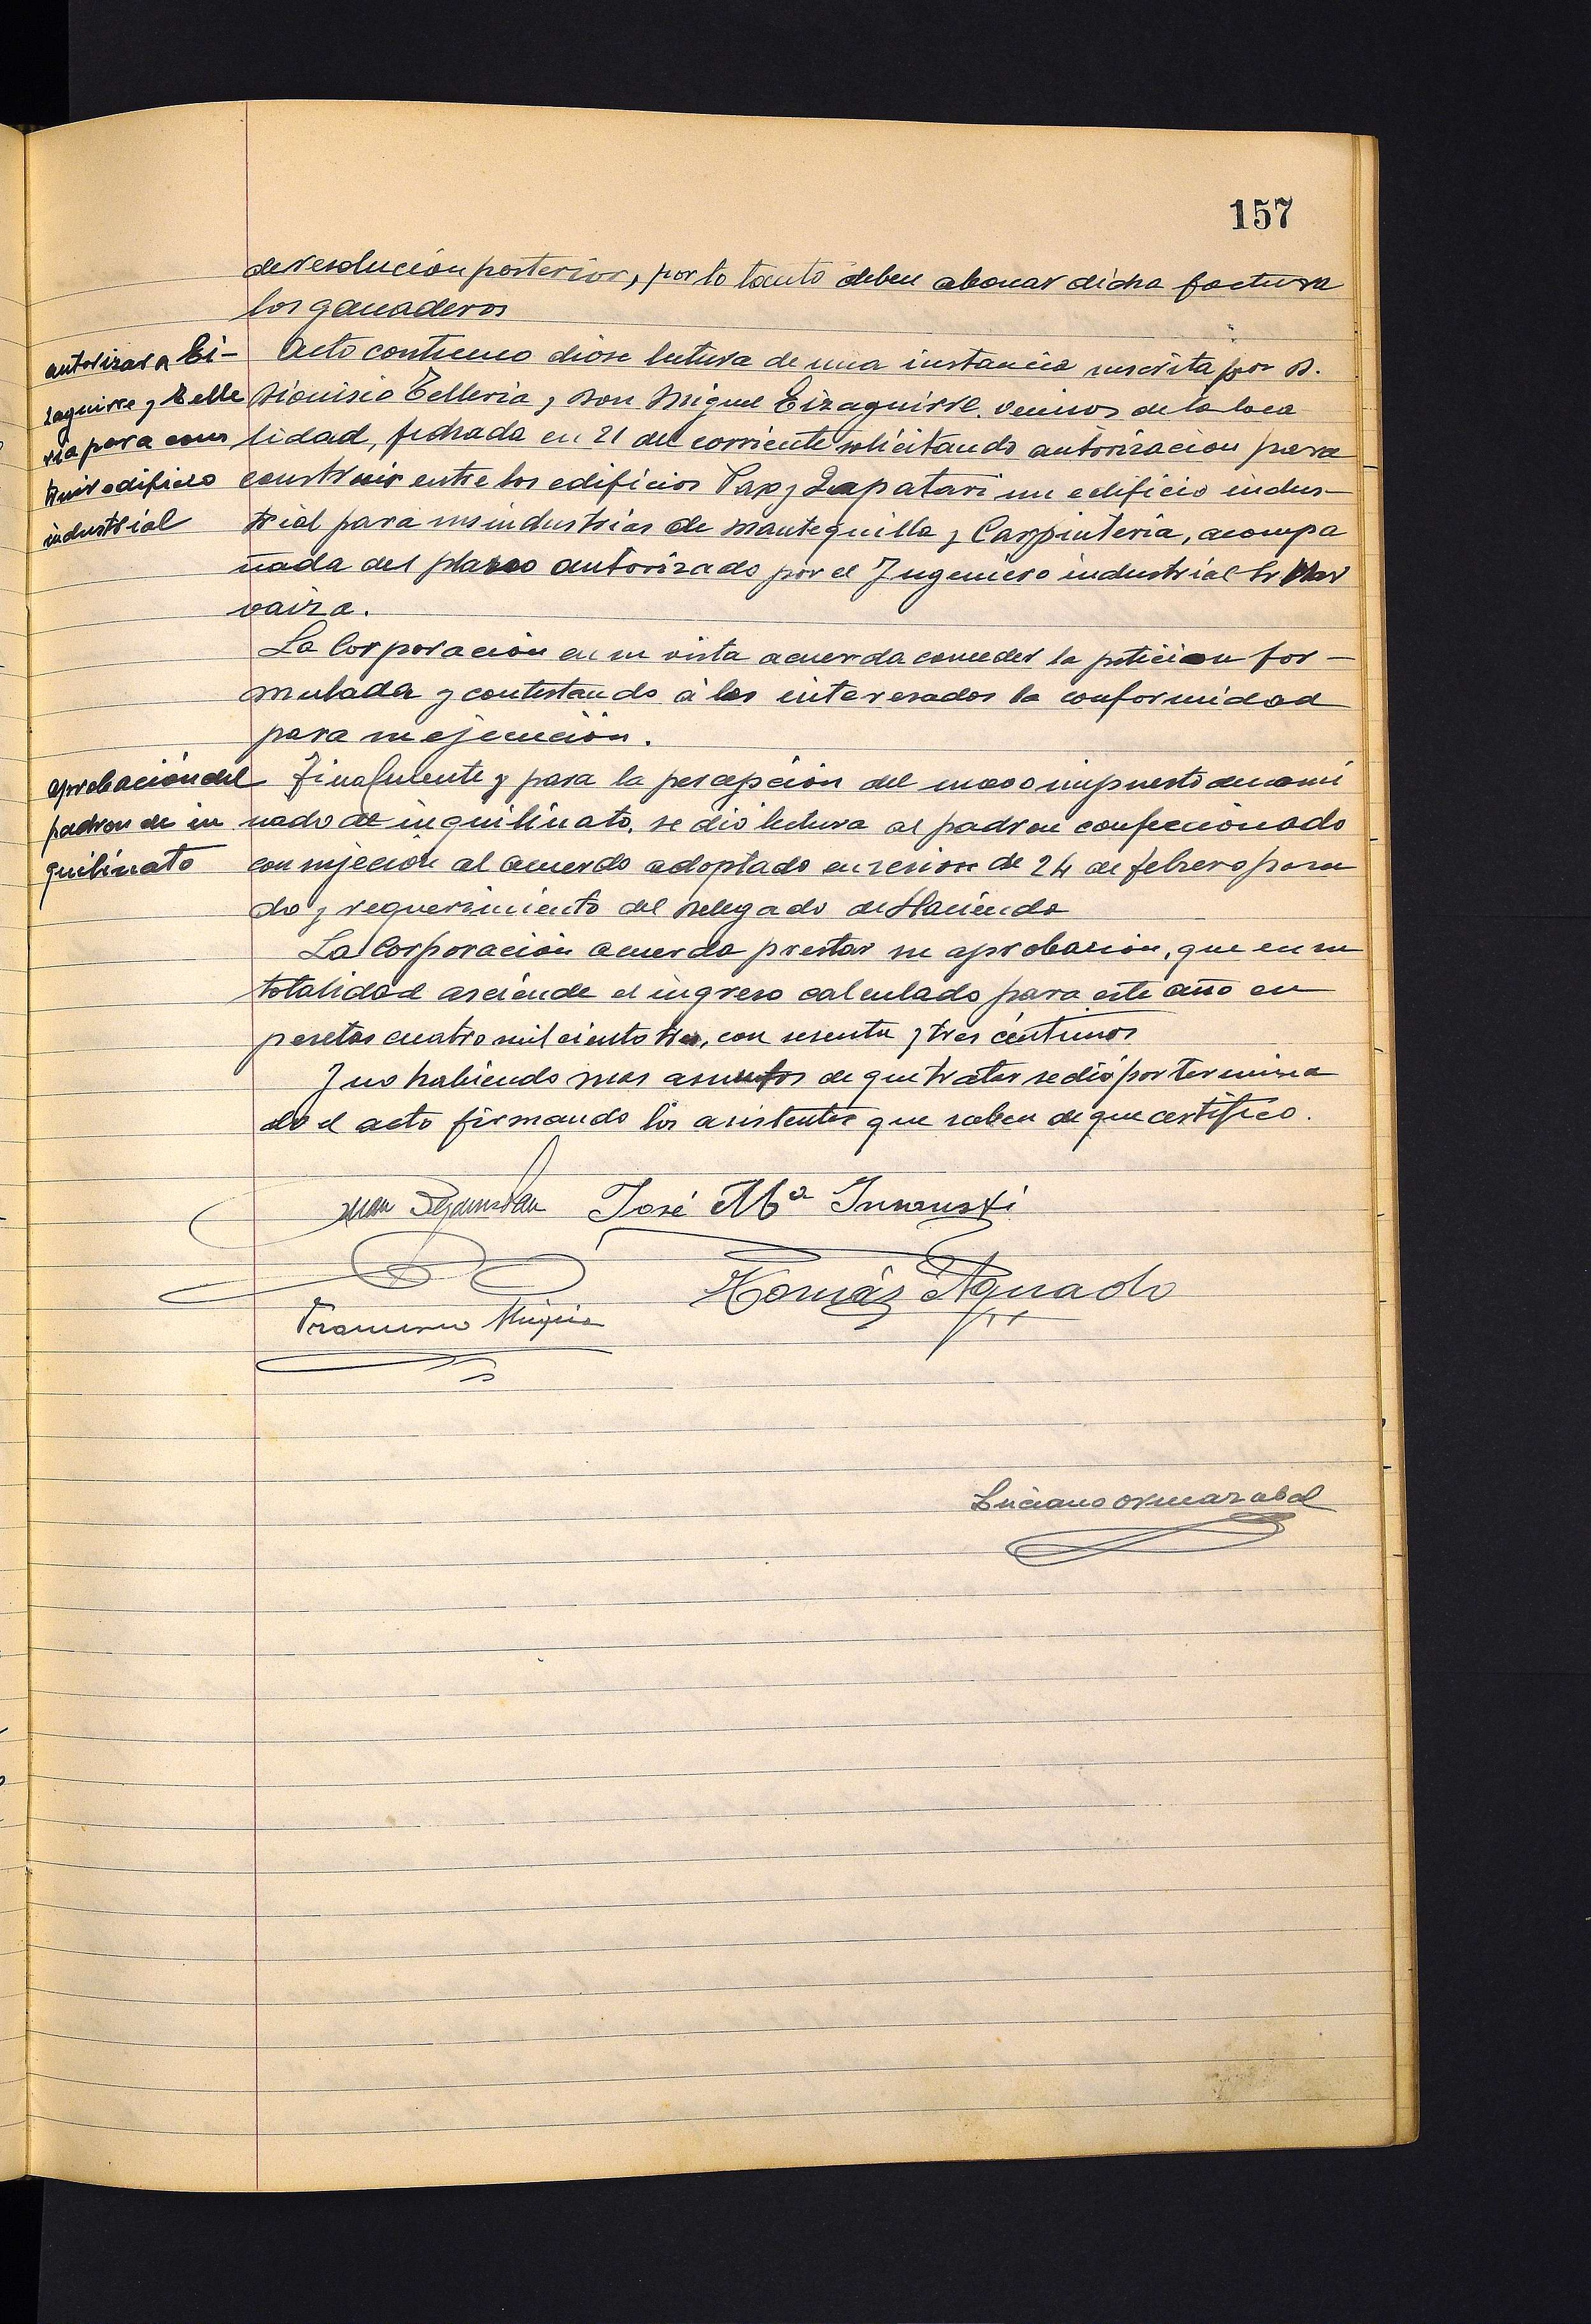 157
de resolución posterior, por lo tanto deben abonar dicha factura
los ganaderos
autorizar a Ei-
zaguirre y Telle
ria para cons
truir edificio
industrial
Acto continuo dióse lectura de una instancia suscrita por D.
Dionisio Telleria y Don Miguel Eizaguirre, vecinos de la loca
lidad, fechada en 21 del corriente solicitando autorizacion para
construir entre los edificios Pax y Zapatari un edificio indus-
trial para sus industrias de Mantequilla y Carpinteria, acompa
ñada del plano autorizado por el Ingeniero industrial Sr Nar
vaiza.
La Corporación en su vista acuerda conceder la peticion for-
mulada y contestando á los interesados la conformidad
para su ejecución.
aprobación del
padron de in
quilinato
Finalmente y para la percepción del nuevo impuesto denomi
nado de inquilinato, se dió lectura al padron confeccionado
con sujeción al acuerdo adoptado en sesion de 24 de febrero pasa
do y requerimiento del Delegado de Hacienda
La Corporación acuerda prestar su aprobación, que en su
totalidad asciende el ingreso calculado para este año en
pesetas cuatro mil ciento tres, con sesenta y tres céntimos
Y no habiendo mas asuntos de que tratar se dió por termina
do el acto firmando los asistentes que saben de que certifico.
Juan José Mª Insausti
Tomás Aguado
Francisco Múgica
Luciano Ormazabal